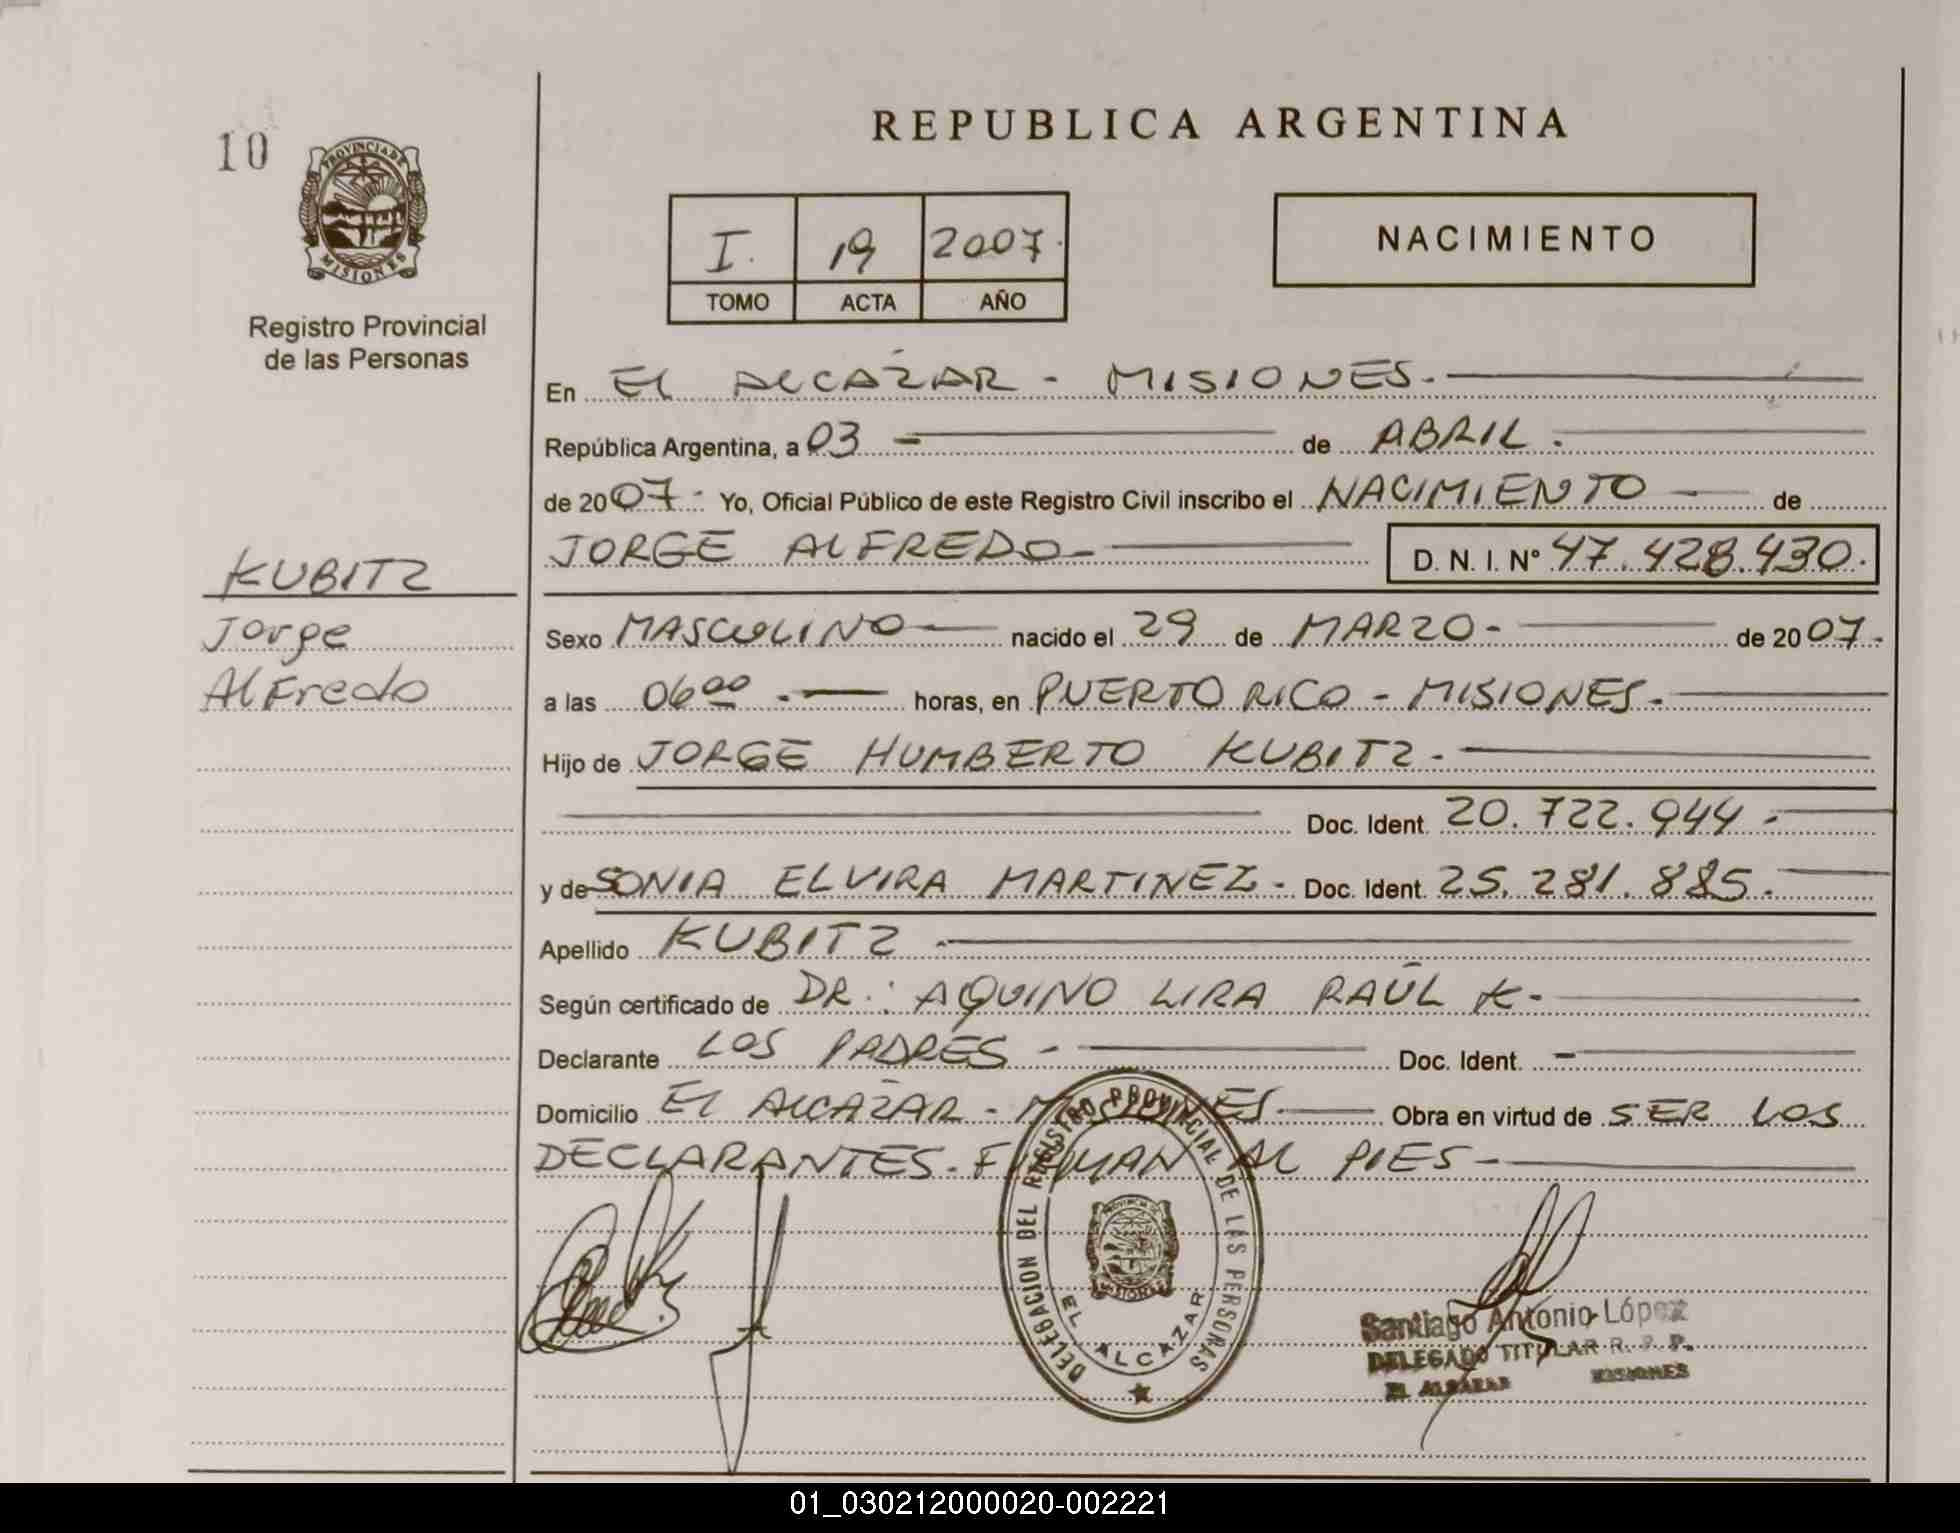 REPUBLICA ARGENTINA
10
PROVINCIA DE
MISIONES
Registro Provincial
de las Personas
I. 19 2007.
TOMO ACTA AÑO
NACIMIENTO
En EL ALCÁZAR - MISIONES.
República Argentina, a 03 - de ABRIL.
de 2007.- Yo, Oficial Público de este Registro Civil inscribo el NACIMIENTO - de
JORGE ALFREDO- D. N. I. N° 47.428.430.
KUBITZ
Jorge
Alfredo
Sexo MASCULINO - nacido el 29 de MARZO - de 2007.
a las 06 00 - horas, en PUERTO RICO - MISIONES.-
Hijo de JORGE HUMBERTO KUBITZ.
Doc. Ident. 20.722.944.-
y de SONIA ELVIRA MARTINEZ- Doc. Ident. 25.281.885.
Apellido KUBITZ.
Según certificado de DR.: AQUINO LIRA RAÚL K-
Declarante LOS PADRES - Doc. Ident. -
Domicilio EL ALCÁZAR - MISIONES. Obra en virtud de SER LOS
DECLARANTES. FIRMAN AL PIES-
DELEGACION DEL REGISTRO PROVINCIAL DE LAS PERSONAS
EL ALCAZAR
Santiago Antonio López
DELEGADO TITULAR R. P. P.
EL ALCAZAR MISIONES
01_030212000020-002221